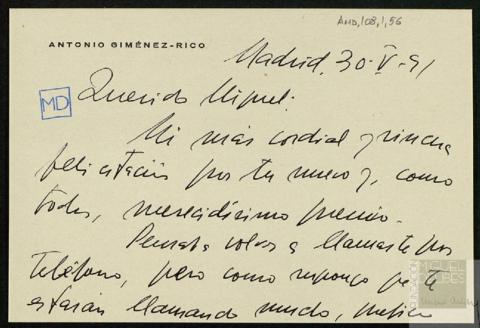 AMD,108,1,56
ANTONIO GIMÉNEZ-RICO
Madrid, 30-V-91
MD
Querido Miguel:
Mi más cordial y sincera
felicitación por tu nuevo y, como
todos, merecidísimo premio.
Pensaba volver a llamarte por
teléfono, pero como supongo que te
estarán llamando mucho, prefiero
FUNDACIÓN
MIGUEL
DELIBES